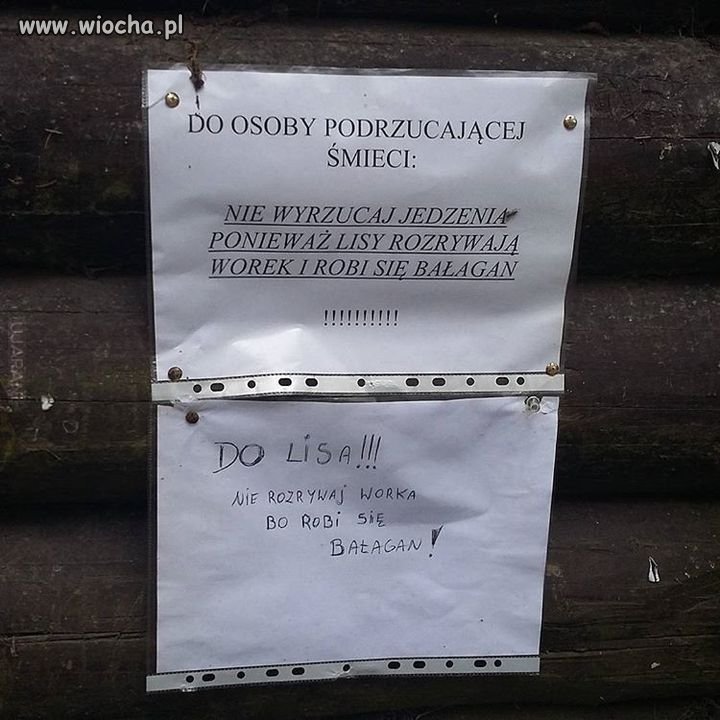 www.wiocha.pl
DO OSOBY PODRZUCAJĄCEJ
ŚMIECI:
NIE WYRZUCAJ JEDZENIA
PONIEWAŻ LISY ROZRYWAJĄ
WOREK I ROBI SIĘ BAŁAGAN
!!!!!!!!!!
DO LISA!!!
NIE ROZRYWAJ WORKA
BO ROBI SIĘ
BAŁAGAN!